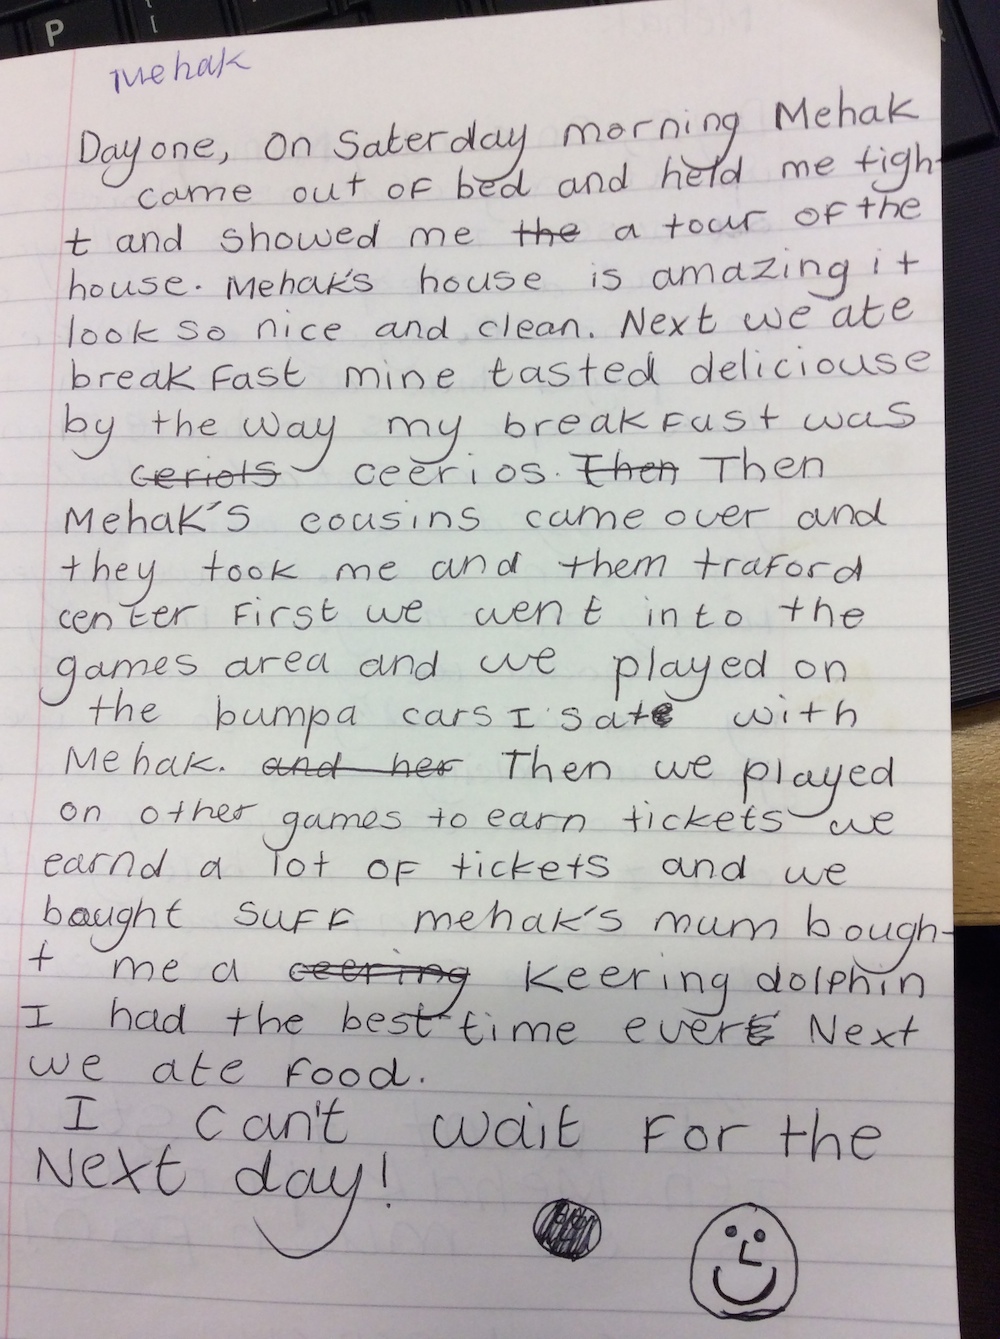 P
Mehak
Day one, On Saterday morning Mehak
came out of bed and held me tigh-
t and showed me the a tour of the
house. Mehak's house is amazing it
look so nice and clean. Next we ate
breakfast mine tasted deliciouse
by the way my breakfast was
ceriots ceerios. Then Then
Mehak's cousins came over and
they took me and them traford
center First we went into the
games area and we played on
the bumpa cars I sat with
Mehak. and her Then we played
on other games to earn tickets we
earnd a lot of tickets and we
bought suff mehak's mum bough-
t me a ceering keering dolphin
I had the best time ever Next
we ate food.
I can't wait for the
Next day!